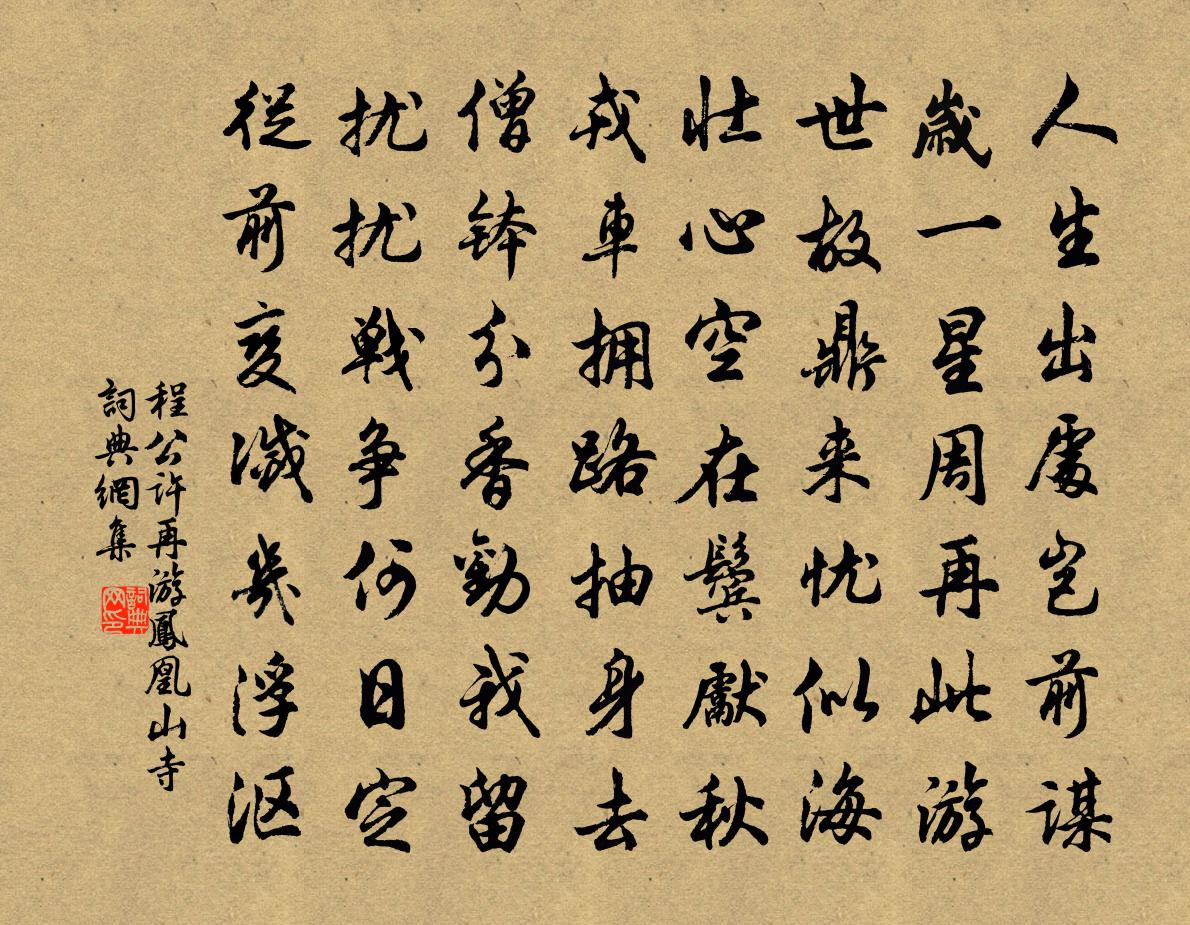 人生出處豈前謀
歲一星周再此游
世故鼎来忧似海
壮心空在鬓獻秋
戎車拥路抽身去
僧钵分香勸我留
扰扰戰争何日定
從前变滅幾浮沤
程公許再游鳳凰山寺
詞典網集
詞典网印